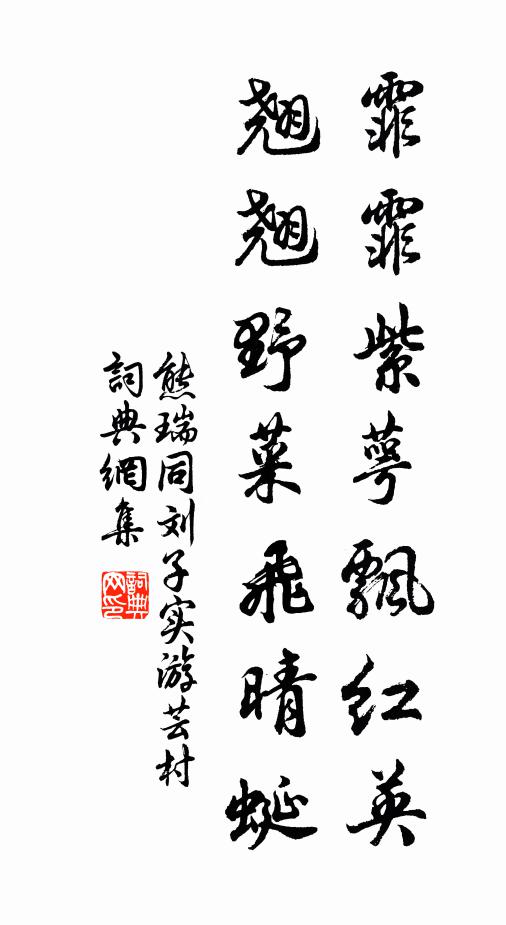 霏霏紫萼飄红英
翹翹野菜飛晴蜓
熊瑞同刘子实游芸村
詞典網集
詞典网印